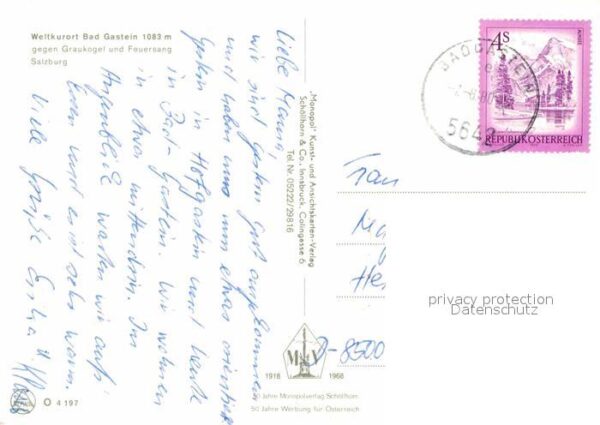 Weltkurort Bad Gastein 1083 m
gegen Graukogel und Feuersang
Salzburg
Liebe
wir sind gestern gut angekommen
und haben uns nun etwas orientiert
Gestern in Hofgastein und heute
in Bad-Gastein. Wir wohnen
in etwa mittendrin. Im
Augenblick warten wir aufs
Essen und es ist sehr warm.
Viele Grüße
O 4 197
"Monopol" Kunst- und Ansichtskarten-Verlag
Schöllhorn & Co., Innsbruck, Colingasse 6
Tel. Nr. 05222/29816
M V
1918 1968
50 Jahre Monopolverlag Schöllhorn
50 Jahre Werbung für Österreich
4s
REPUBLIK ÖSTERREICH
BADGASTEIN
5642
Frau
Ma
He
D-8500
privacy protection
Datenschutz